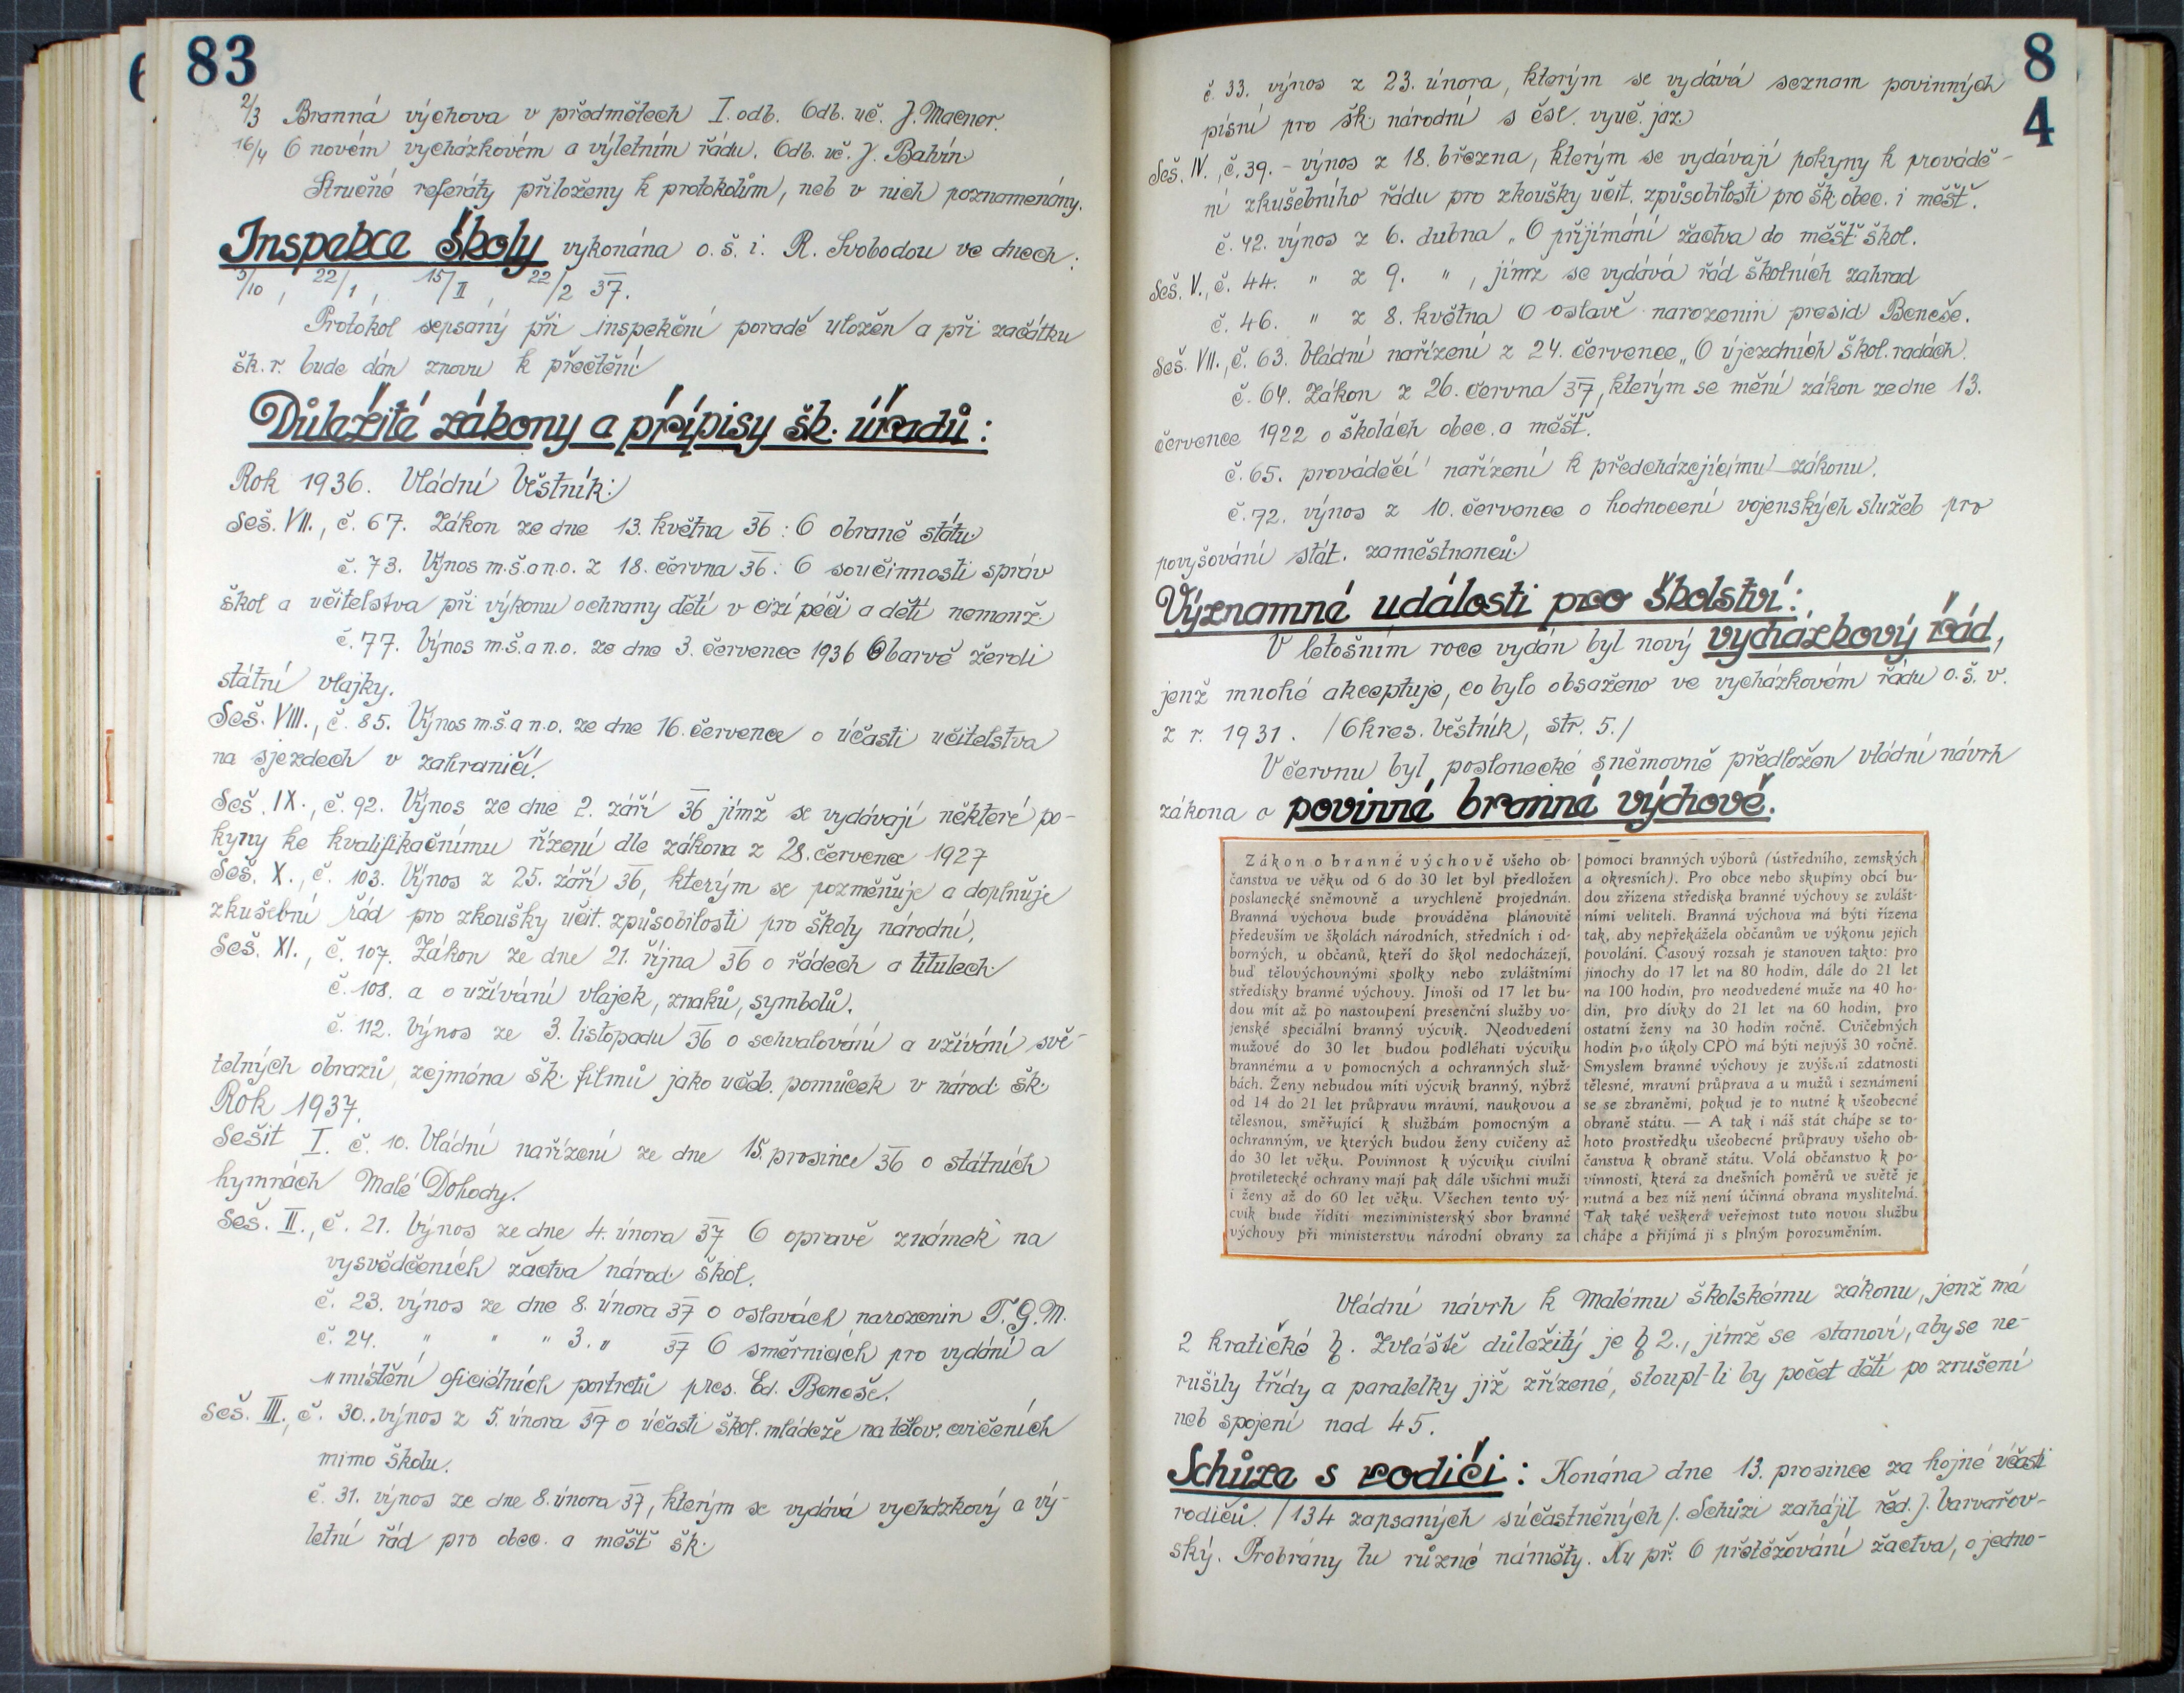 83
2/3 Branná výchova v předmětech I. odb. Odb. uč. J. Macner.
16/4 O novém vycházkovém a výletním řádu. Odb. uč. J. Balvín
Stručné referáty přiloženy k protokolům, neb v nich poznamenány.
Inspekce školy vykonána o. š. i. R. Svobodou ve dnech:
5/10, 22/1, 15/II, 22/2 37.
Protokol sepsaný při inspekční poradě uložen a při začátku
šk. r. bude dán znovu k přečtení.
Důležité zákony a přípisy šk. úřadů:
Rok 1936. Vládní Věstník:
Seš. VII., č. 67. Zákon ze dne 13. května 36: O obraně státu.
č. 73. Výnos m.š.a n.o. z 18. června 36: O součinnosti správ
škol a učitelstva při výkonu ochrany dětí v cizí péči a dětí nemanž.
č. 77. Výnos m.š.a n.o. ze dne 3. července 1936 O barvě žerdi
státní vlajky.
Seš. VIII., č. 85. Výnos m.š.a n.o. ze dne 16. července o účasti učitelstva
na sjezdech v zahraničí.
Seš. IX., č. 92. Výnos ze dne 2. září 36 jímž se vydávají některé po-
kyny ke kvalifikačnímu řízení dle zákona z 28. července 1927
Seš. X., č. 103. Výnos z 25. září 36, kterým se pozměňuje a doplňuje
zkušební řád pro zkoušky učit. způsobilosti pro školy národní.
Seš. XI., č. 107. Zákon ze dne 21. října 36 o řádech a titulech.
č. 108. a o užívání vlajek, znaků, symbolů.
č. 112. Výnos ze 3. listopadu 36 o schvalování a užívání svě-
telných obrazů, zejména šk. filmů jako učeb. pomůcek v národ. šk.
Rok 1937.
Sešit I. č. 10. Vládní nařízení ze dne 15. prosince 36 o státních
hymnách Malé Dohody.
Seš. II., č. 21. Výnos ze dne 4. února 37 O opravě známek na
vysvědčeních žactva národ. škol.
č. 23. výnos ze dne 8. února 37 o oslavách narozenin T. G. M.
č. 24. " " " 3. " 37 O směrnicích pro vydání a
umístění oficielních portretů pres. Ed. Beneše.
Seš. III., č. 30. výnos z 5. února 37 o účasti škol. mládeže na tělov. cvičeních
mimo školu.
č. 31. výnos ze dne 8. února 37, kterým se vydává vycházkový a vý-
letní řád pro obec. a měšť. šk.
84
č. 33. výnos z 23. února, kterým se vydává seznam povinných
písní pro šk. národní s čsl. vyuč. jaz.
Seš. IV., č. 39. - výnos z 18. března, kterým se vydávají pokyny k provádě-
ní zkušebního řádu pro zkoušky učit. způsobilosti pro šk. obec. i měšť.
č. 42. výnos z 6. dubna „O přijímání žactva do měšť. škol.
Seš. V., č. 44. " z 9. ", jímž se vydává řád školních zahrad
č. 46. " z 8. května O oslavě narozenin presid Beneše.
Seš. VII., č. 63. Vládní nařízení z 24. července „O újezdních škol. radách.
č. 64. Zákon z 26. června 37, kterým se mění zákon ze dne 13.
července 1922 o školách obec. a měšť.
č. 65. prováděčí nařízení k předcházejícímu zákonu.
č. 72. výnos z 10. července o hodnocení vojenských služeb pro
povyšování stát. zaměstnanců.
Významné události pro školství:
V letošním roce vydán byl nový vycházkový řád,
jenž mnohé akceptuje, co bylo obsaženo ve vycházkovém řádu o. š. v.
z r. 1931. /Okres. Věstník, str. 5./
V červnu byl poslanecké sněmovně předložen vládní návrh
zákona o povinné branné výchově.
Zákon o branné výchově všeho ob-
čanstva ve věku od 6 do 30 let byl předložen
poslanecké sněmovně a urychleně projednán.
Branná výchova bude prováděna plánovitě
především ve školách národních, středních i od-
borných, u občanů, kteří do škol nedocházejí,
buď tělovýchovnými spolky nebo zvláštními
středisky branné výchovy. Jinoši od 17 let bu-
dou mít až po nastoupení presenční služby vo-
jenské speciální branný výcvik. Neodvedení
mužové do 30 let budou podléhati výcviku
brannému a v pomocných a ochranných služ-
bách. Ženy nebudou míti výcvik branný, nýbrž
od 14 do 21 let průpravu mravní, naukovou a
tělesnou, směřující k službám pomocným a
ochranným, ve kterých budou ženy cvičeny až
do 30 let věku. Povinnost k výcviku civilní
protiletecké ochrany mají pak dále všichni muži
i ženy až do 60 let věku. Všechen tento vý-
cvik bude říditi meziministerský sbor branné
výchovy při ministerstvu národní obrany za
pomoci branných výborů (ústředního, zemských
a okresních). Pro obce nebo skupiny obcí bu-
dou zřízena střediska branné výchovy se zvlášt-
ními veliteli. Branná výchova má býti řízena
tak, aby nepřekážela občanům ve výkonu jejich
povolání. Časový rozsah je stanoven takto: pro
jinochy do 17 let na 80 hodin, dále do 21 let
na 100 hodin, pro neodvedené muže na 40 ho-
din, pro dívky do 21 let na 60 hodin, pro
ostatní ženy na 30 hodin ročně. Cvičebných
hodin pro úkoly CPO má býti nejvýš 30 ročně.
Smyslem branné výchovy je zvýšení zdatnosti
tělesné, mravní průprava a u mužů i seznámení
se se zbraněmi, pokud je to nutné k všeobecné
obraně státu. — A tak i náš stát chápe se to-
hoto prostředku všeobecné průpravy všeho ob-
čanstva k obraně státu. Volá občanstvo k po-
vinnosti, která za dnešních poměrů ve světě je
nutná a bez níž není účinná obrana myslitelná.
Tak také veškerá veřejnost tuto novou službu
chápe a přijímá ji s plným porozuměním.
Vládní návrh k Malému školskému zákonu, jenž má
2 kratičké §. Zvláště důležitý je § 2., jímž se stanoví, aby se ne-
rušily třídy a paralelky již zřízené, stoupl-li by počet dětí po zrušení
neb spojení nad 45.
Schůze s rodiči: Konána dne 13. prosince za hojné účasti
rodičů. /134 zapsaných súčastněných/. Schůzi zahájil řed. J. Varvařov-
ský. Probrány tu různé náměty. Ku př. O přetěžování žactva, o jedno-